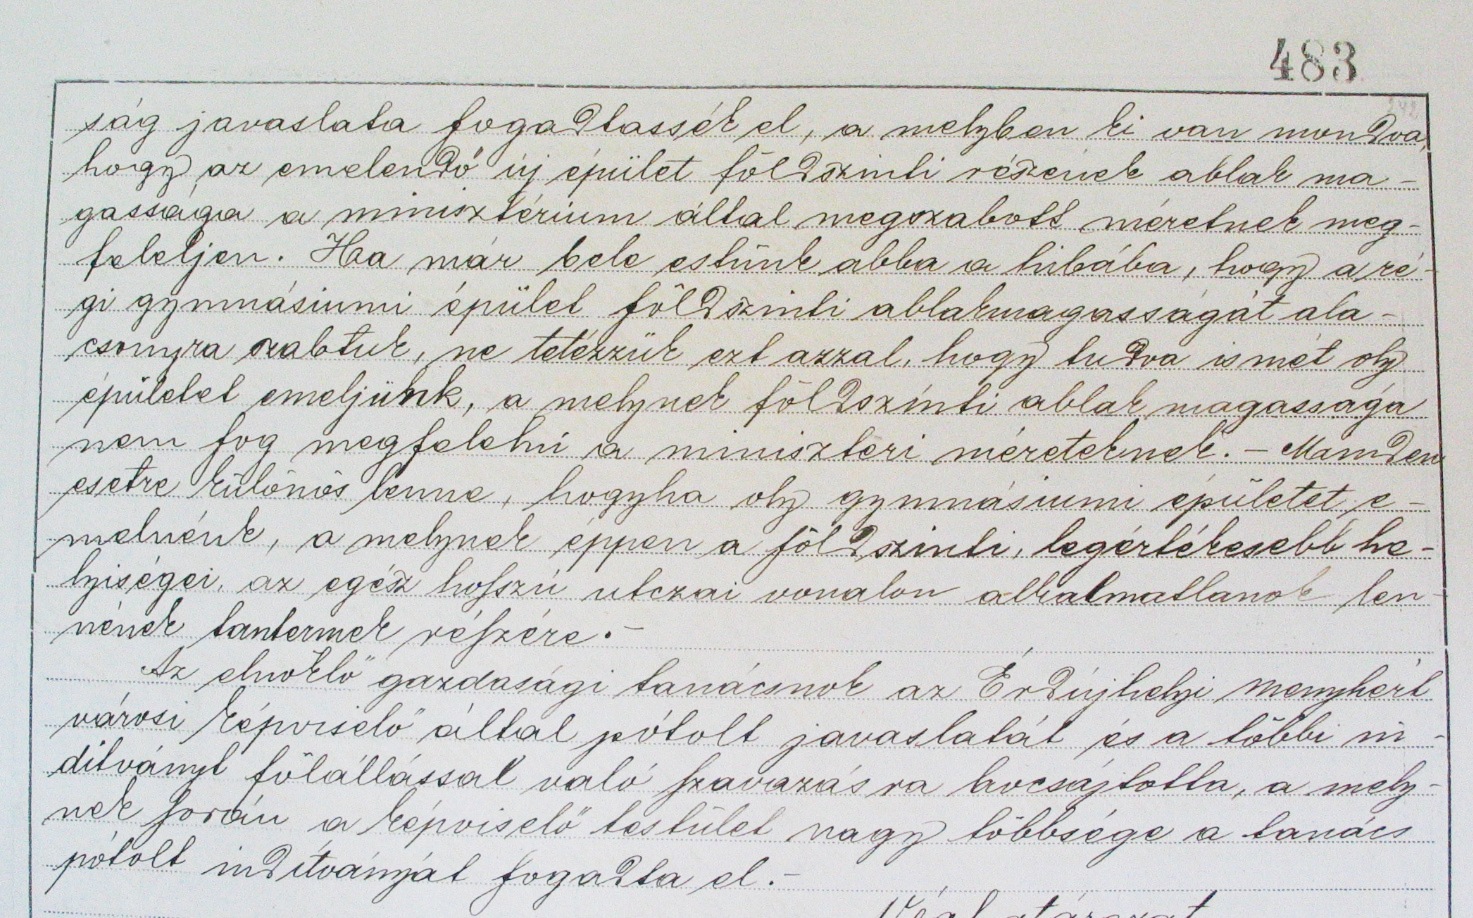 483
ság javaslata fogadtassék el, a melyben ki van mondva,
hogy az emelendő új épület földszinti részének ablak ma-
gassága a minisztérium által megszabott méretnek meg-
feleljen. Ha már bele estünk abba a hibába, hogy a ré-
gi gymnásiumi épület földszinti ablakmagasságát ala-
csonyra szabtuk, ne tetézzük ezt azzal, hogy tudva ismét oly
épületet emeljünk, a melynek földszinti ablak magassága
nem fog megfelelni a miniszteri méreteknek. - Minden
esetre különös lenne, hogyha oly gymnásiumi épületet e-
melnénk, a melynek éppen a földszinti, legértékesebb he-
lyiségei, az egész hosszú utczai vonalon alkalmatlanok len-
nének tantermek részére. -
Az elnöklő gazdasági tanácsnok az Érdújhelyi Menyhért
városi képviselő által pótolt javaslatát és a többi in-
dítványt fölállással való szavazásra bocsájtotta, a mely-
nek során a képviselő testület nagy többsége a tanács
pótolt indítványát fogadta el. -
Véghatározat